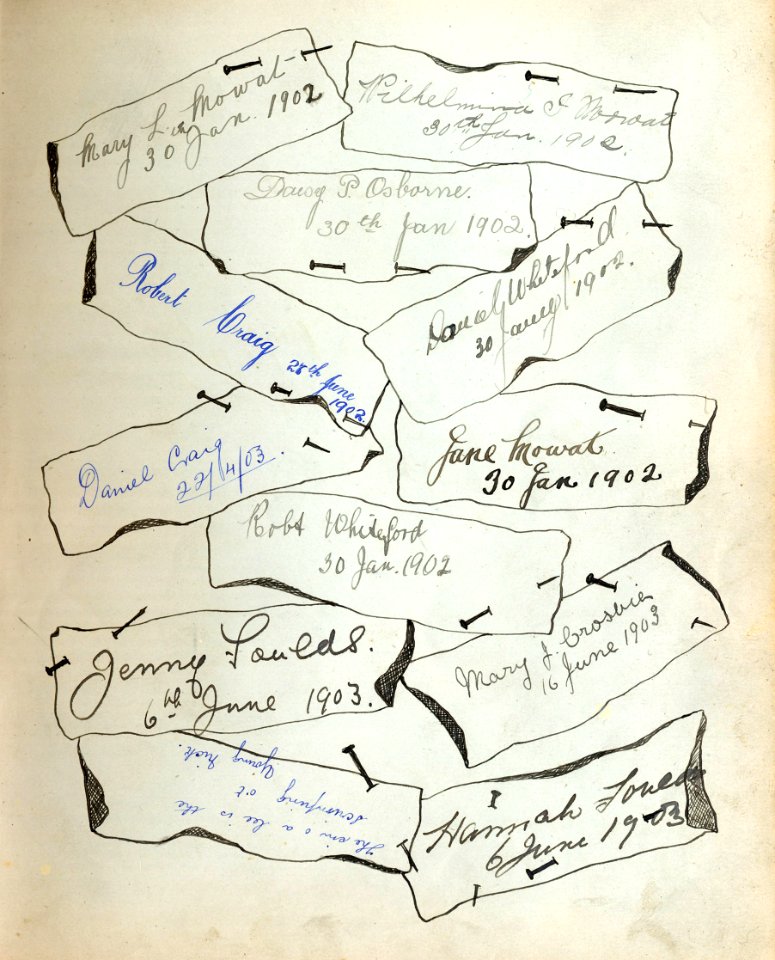 Mary L. Mowat
30 Jan. 1902
Wilhelmina S Mowat
30th Jan. 1902.
Daisy P. Osborne.
30th Jan 1902.
Robert Craig
28th June
1902
Daniel Whiteford
30 Jany 1902.
Daniel Craig
22/4/03.
Jane Mowat
30 Jan 1902
Robt Whiteford
30 Jan. 1902
Jenny Foulds.
6th June 1903.
Mary J. Crosbie
16 June 1903
The o a lee is the
o't
Young Nick.
Hannah Foulds
6 June 1903